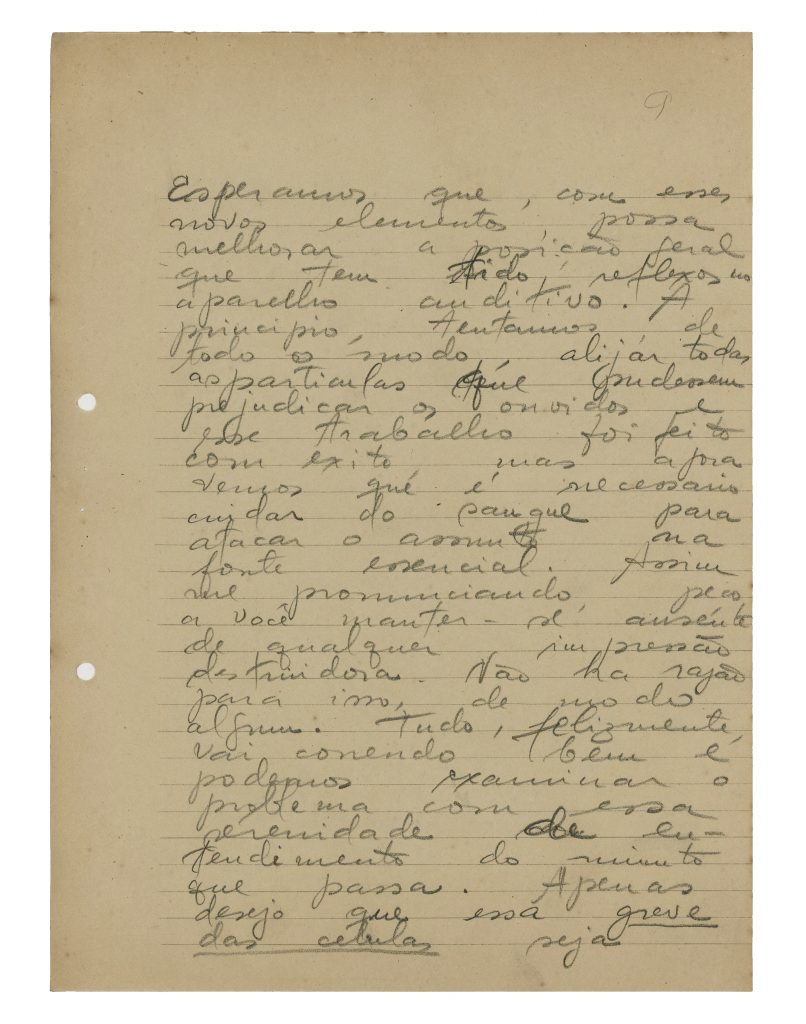 9
Esperamos que, com esses
novos elementos, possa
melhorar a posição geral
que tem tido reflexos no
aparelho auditivo. A
principio, tentamos de
todo o modo, alijár todas
as particulas que pudessem
prejudicar os ouvidos e
esse trabalho foi feito
com exito mas agora
vemos que é necessario
cuidar do sangue para
atacar o assunto na
fonte essencial. Assim
me pronunciando, peço
a você manter-se ausente
de qualquer impressão
destruidora. Não ha razão
para isso, de modo
algum. Tudo, felizmente,
vai correndo bem e
podemos examinar o
problema com essa
serenidade de en-
tendimento do minuto
que passa. Apenas
desejo que essa greve
das celulas seja